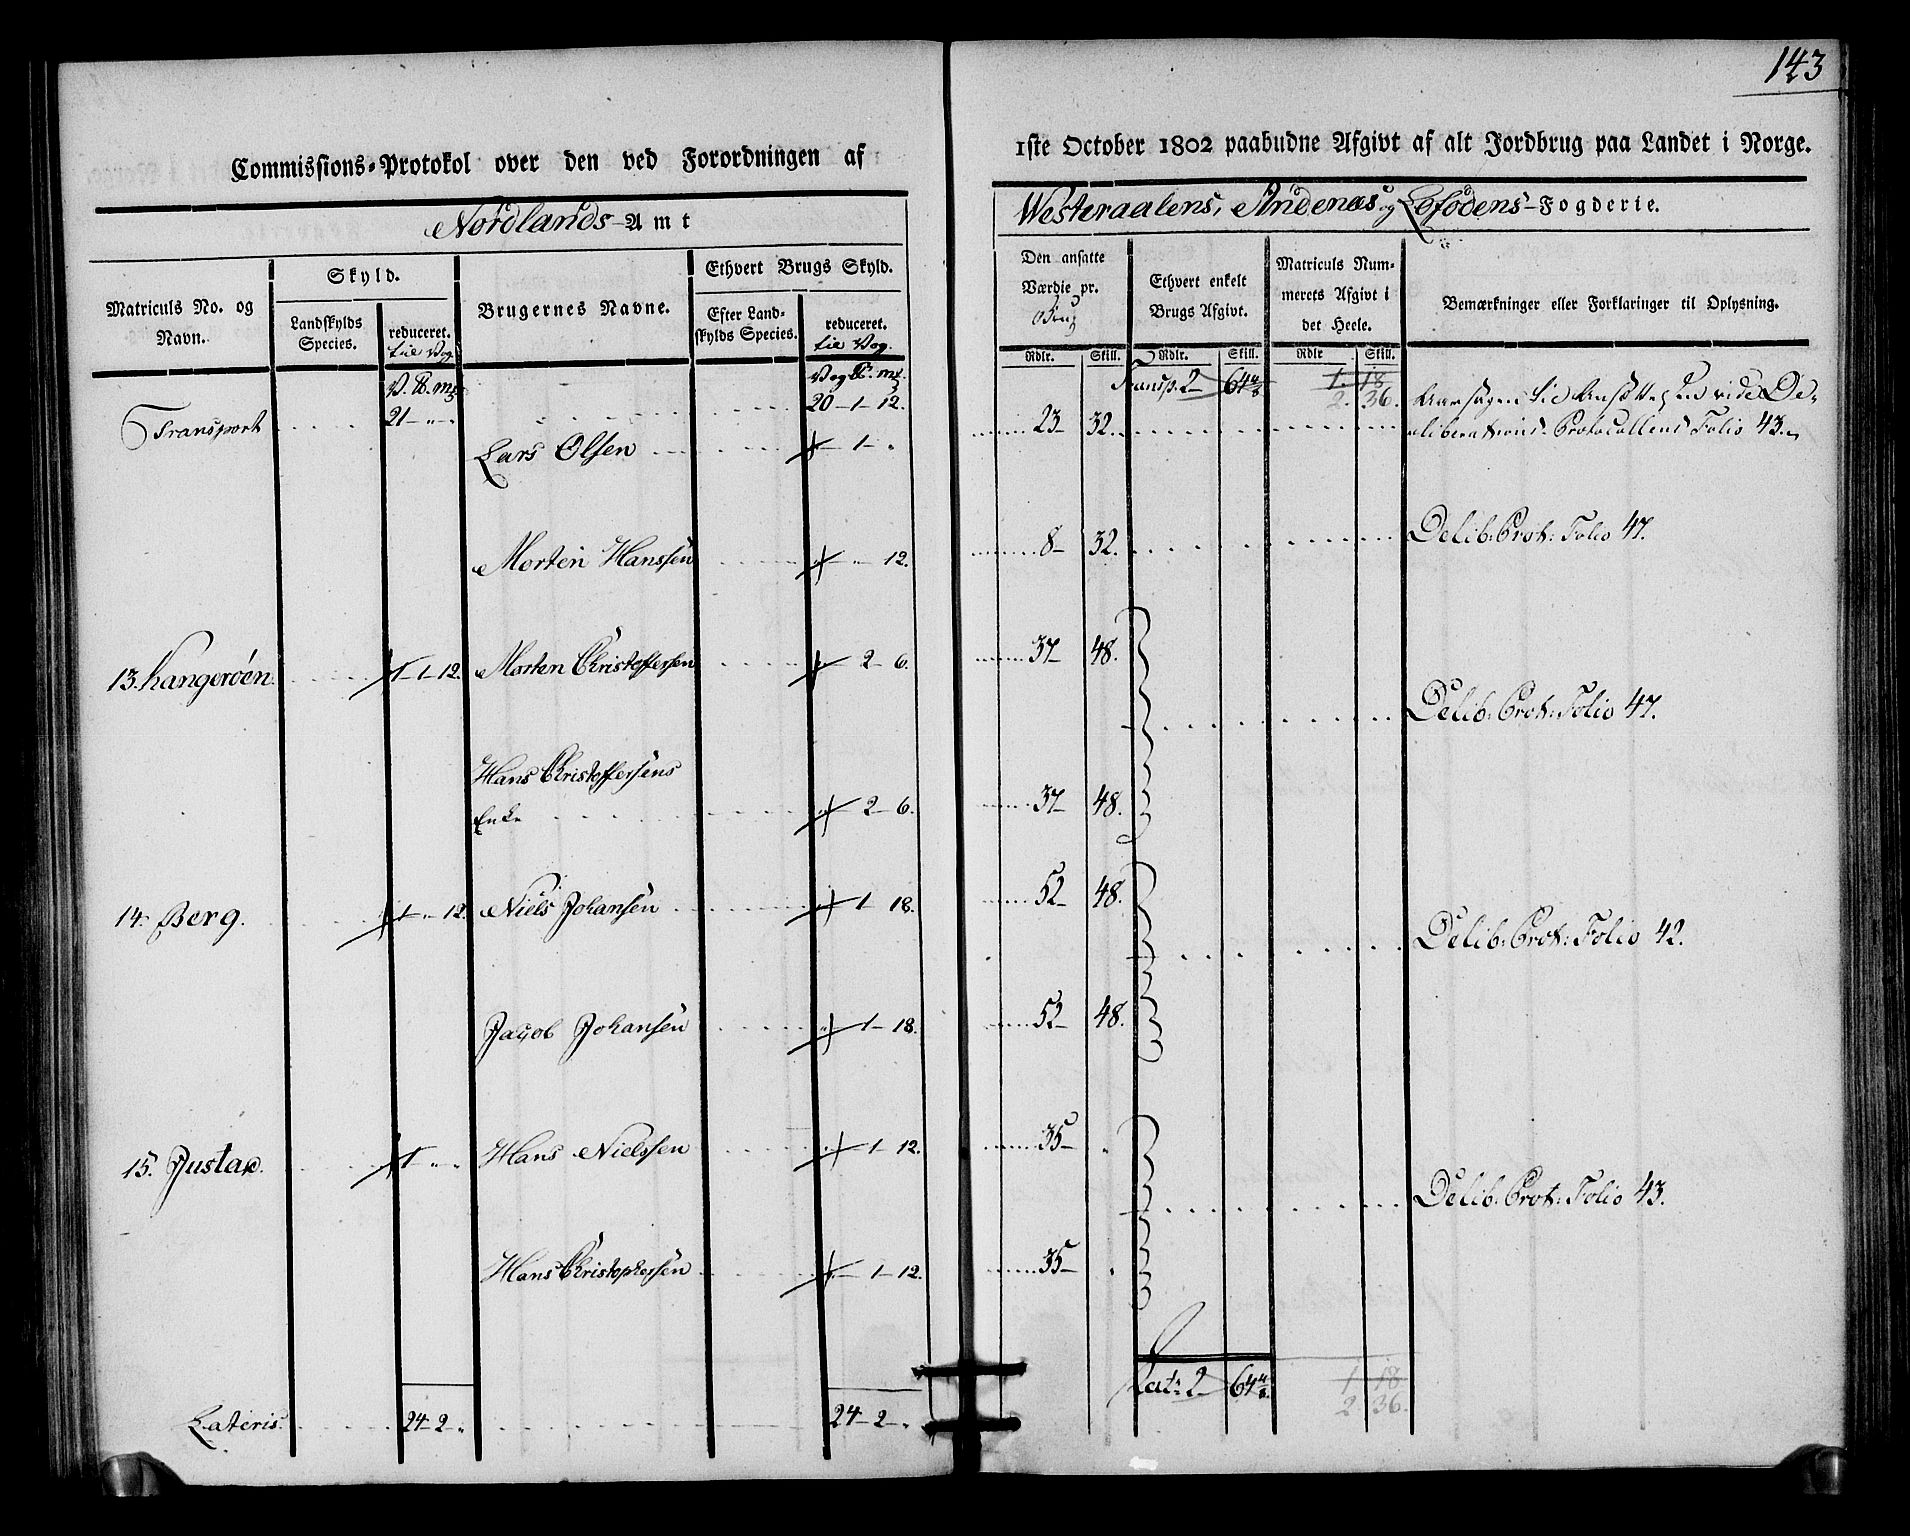 143
Commissions-Protokol over den ved Forordningen af
1ste October 1802 paabudne Afgivt af alt Jordbrug paa Landet i Norge.
Nordlands-Amt
Westeraalens, Andenæs og Lofodens-Fogderie.
Matriculs No. og Navn.
Skyld.
Landskylds Species.
reduceret.
til Vog.
Brugernes Navne.
Ethvert Brugs Skyld.
Efter Landskylds Species.
reduceret.
til Vog.
Den ansatte Værdie pr.
Brug
Ethvert enkelt Brugs Afgivt.
Matriculs Nummerets Afgivt i det Heele.
Bemærkninger eller Forklaringer til Oplysning.
Rdlr. Skill. Rdlr. Skill. Rdlr Skill.
Transp. 2 64
1. 18
2. 36.
Transport 21 20-1-12.
Lars Olsen 1 23 32. Aarsagen til Ansættelsen vide De-
liberations Protocollens Folio 43.
Morten Hanssen 12. 8 32. Delib: Prot: Folio 47.
13. Kangerøen 1-1-12. Morten Christoffersen 2-6. 37 48.
Delib: Prot: Folio 47.
Hans Christoffersens
Enke 2-6. 37 48.
14. Berg. 1 12. Niels Johansen 1 18. 52 48.
Delib: Prot: Folio 42.
Jacob Johansen 1-18. 52 48.
15. Justad. 1 Hans Nielssen 1-12. 35
Delib: Prot: Folio 43.
Hans Christophersen 1-12. 35
Lat: 2 64
1 18
2 36.
Lateris 24-2 24-2